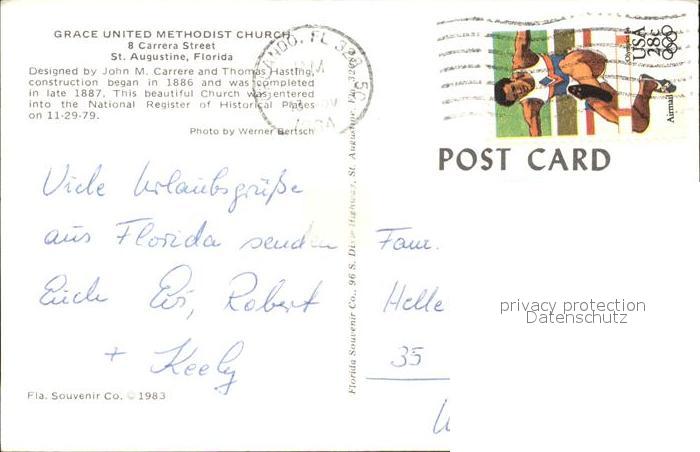 GRACE UNITED METHODIST CHURCH
8 Carrera Street
St. Augustine, Florida
Designed by John M. Carrere and Thomas Hasting,
construction began in 1886 and was completed
in late 1887. This beautiful Church was entered
into the National Register of Historical Places
on 11-29-79.
Photo by Werner Bertsch
Viele Urlaubsgrüße
aus Florida senden
Euch Evi, Robert
+ Keely
Fla. Souvenir Co. © 1983
Florida Souvenir Co., 96 S. Dixie Highway, St. Augustine, Fla. 320
ORLANDO, FL 328
PM
NOV
1984
USA
28c
Airmail
POST CARD
Fam.
Helle
35
W
privacy protection
Datenschutz